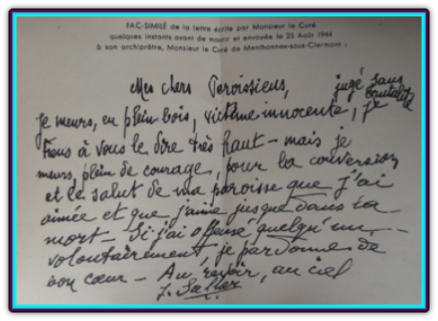 FAC-SIMILÉ de la lettre écrite par Monsieur le Curé
quelques instants avant de mourir et envoyée le 25 Août 1944
à son archiprêtre, Monsieur le Curé de Menthonnex-sous-Clermont
Mes chers Paroissiens,
jugé sans
je meurs, en plein bois, victime innocente, je
tiens à vous le dire très haut - mais je
meurs, plein de courage, pour la conversion
et le salut de ma paroisse que j'ai
aimée et que j'aime jusque dans la
mort - Si j'ai offensé quelqu'un
volontairement, je pardonne de
bon cœur - Au revoir, au ciel